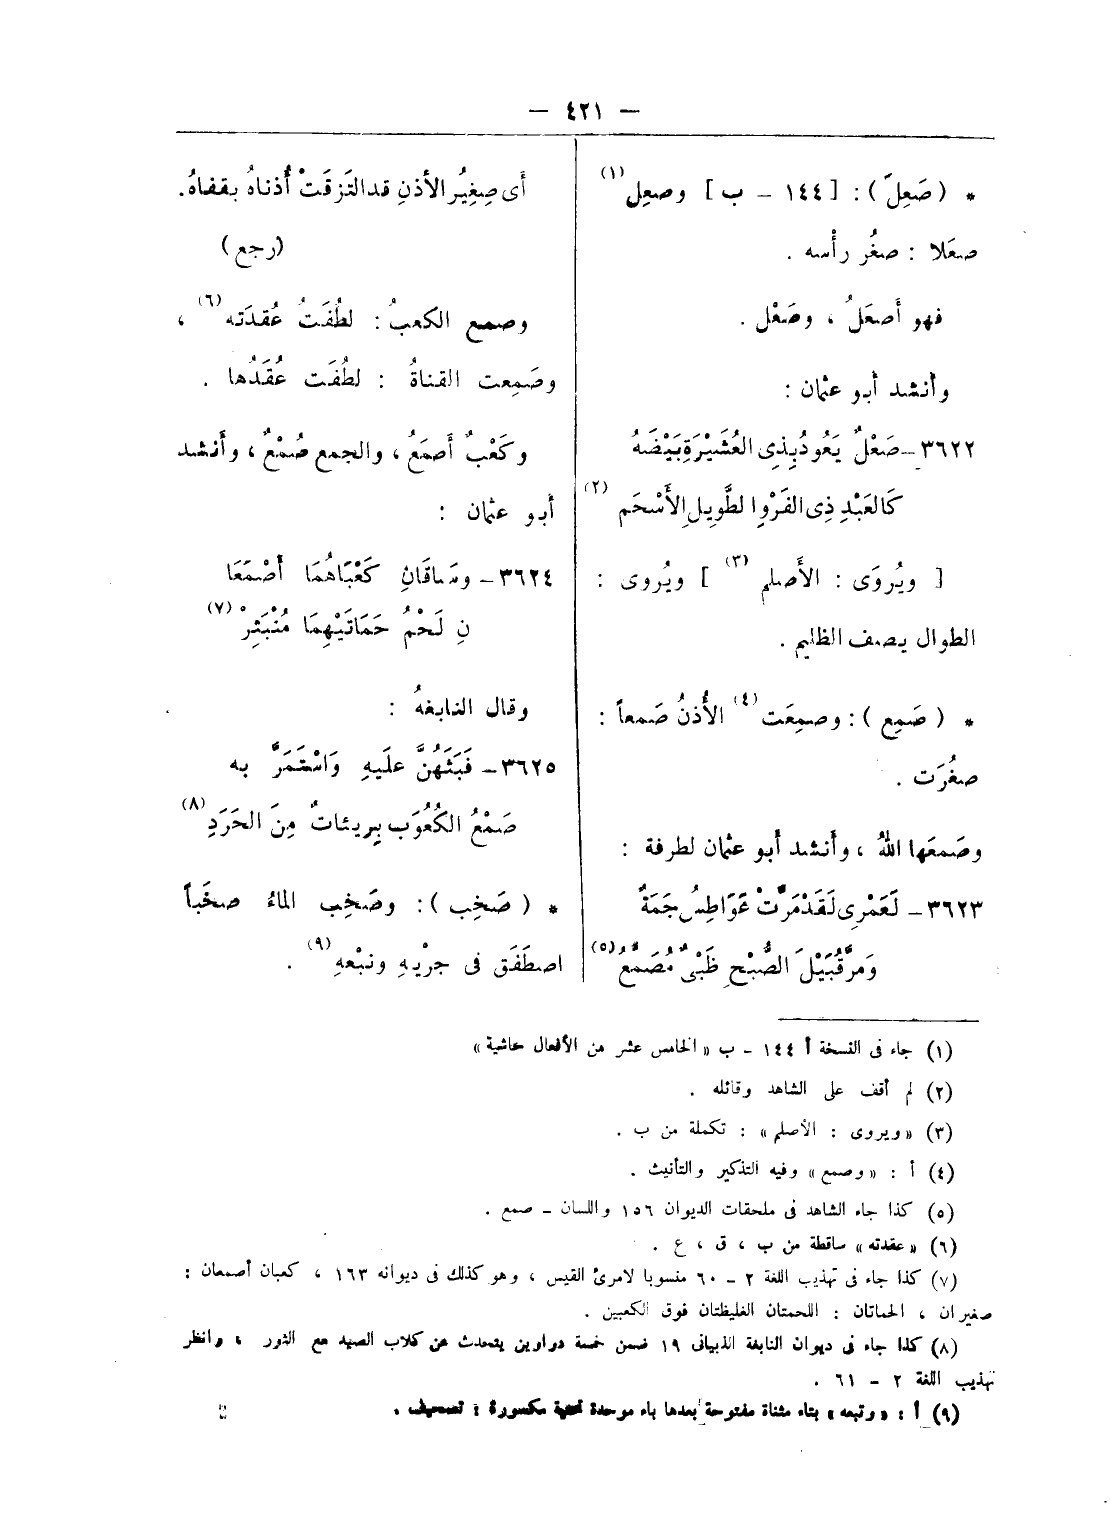 — ٤٢١ —
* ( صَعِلَ ) : [ ١٤٤ – ب ] وصعِل (١)
صعَلا : صغُر رأْسه .
فهو أَصعَلُ ، وصَعْل .
وأَنشد أَبو عثمان :
٣٦٢٢ – صَعْلٌ يَعُودُ بِذِى العُشَيْرَةِ بَيْضَهُ
كَالعَبْدِ ذِى الفَرْوِ الطَّوِيلِ الأَسْحَمِ (٢)
[ ويُروَى : الأَصلم (٣) ] ويُروى :
الطوال يصف الظليم .
* ( صَمِع ) : وصمِعَت (٤) الأُذنُ صَمعاً :
صغُرَت .
وصَمعَها اللهُ ، وأَنشد أَبو عثمان لطرفة :
٣٦٢٣ – لَعَمْرِى لَقَدْ مَرَّتْ عَوَاطِسُ جَمَةٌ
وَمَرَّ قُبَيْلَ الصُّبْحِ ظَبْىٌ مُصَمَّعُ (٥)
أَى صِغِيُر الأذنِ قد التَزقَتْ أُذناهُ بقفاهُ.
(رجع)
وصمع الكعبُ : لطُفَتُ عُقدَته (٦) ،
وصَمِعت القناةُ : لطُفَت عُقَدُها .
وكَعْبٌ أَصمَعُ ، والجمع صُمْعٌ ، وأَنشد
أَبو عثمان :
٣٦٢٤ – وسَاقَانِ كَعْبَاهُمَا أَصْمَعَا
نِ لَحْمُ حَمَاتَيْهِمَا مُنْبَثِرْ (٧)
وقال النابغهُ :
٣٦٢٥ – فَبَثَّهُنَّ علَيهِ وَاسْتَمَرَّ به
صَمْعُ الكُعُوَب بَرِيئاتٌ مِنَ الحَرَدِ (٨)
* ( صَخِب ) : وصَخِب الماءُ صخَباً
اصطَفَق فى جرْيهِ ونبْعهِ (٩) .
(١) جاء فى النسخة أ ١٤٤ – ب «الخامس عشر من الأفعال حاشية»
(٢) لم أقف على الشاهد وقائله .
(٣) «ويروى : الأصلم» : تكملة من ب .
(٤) أ : «وصمع» وفيه التذكير والتأنيث .
(٥) كذا جاء الشاهد فى ملحقات الديوان ١٥٦ واللسان – صمع .
(٦) «عقدته» ساقطة من ب ، ق ، ع .
(٧) كذا جاء فى تهذيب اللغة ٢ – ٦٠ منسوبا لامرئ القيس ، وهو كذلك فى ديوانه ١٦٣ ، كعبان أصمعان :
صغيران ، الحماتان : اللحمتان الغليظتان فوق الكعبين .
(٨) كذا جاء فى ديوان النابغة الذبيانى ١٩ ضمن خمسة دواوين يتحدث عن كلاب الصيد مع الثور ، وانظر
تهذيب اللغة ٢ – ٦١ .
(٩) أ : «وتبعه» بتاء مثناة مفتوحة بعدها باء موحدة تحتية مكسورة : تصحيف .